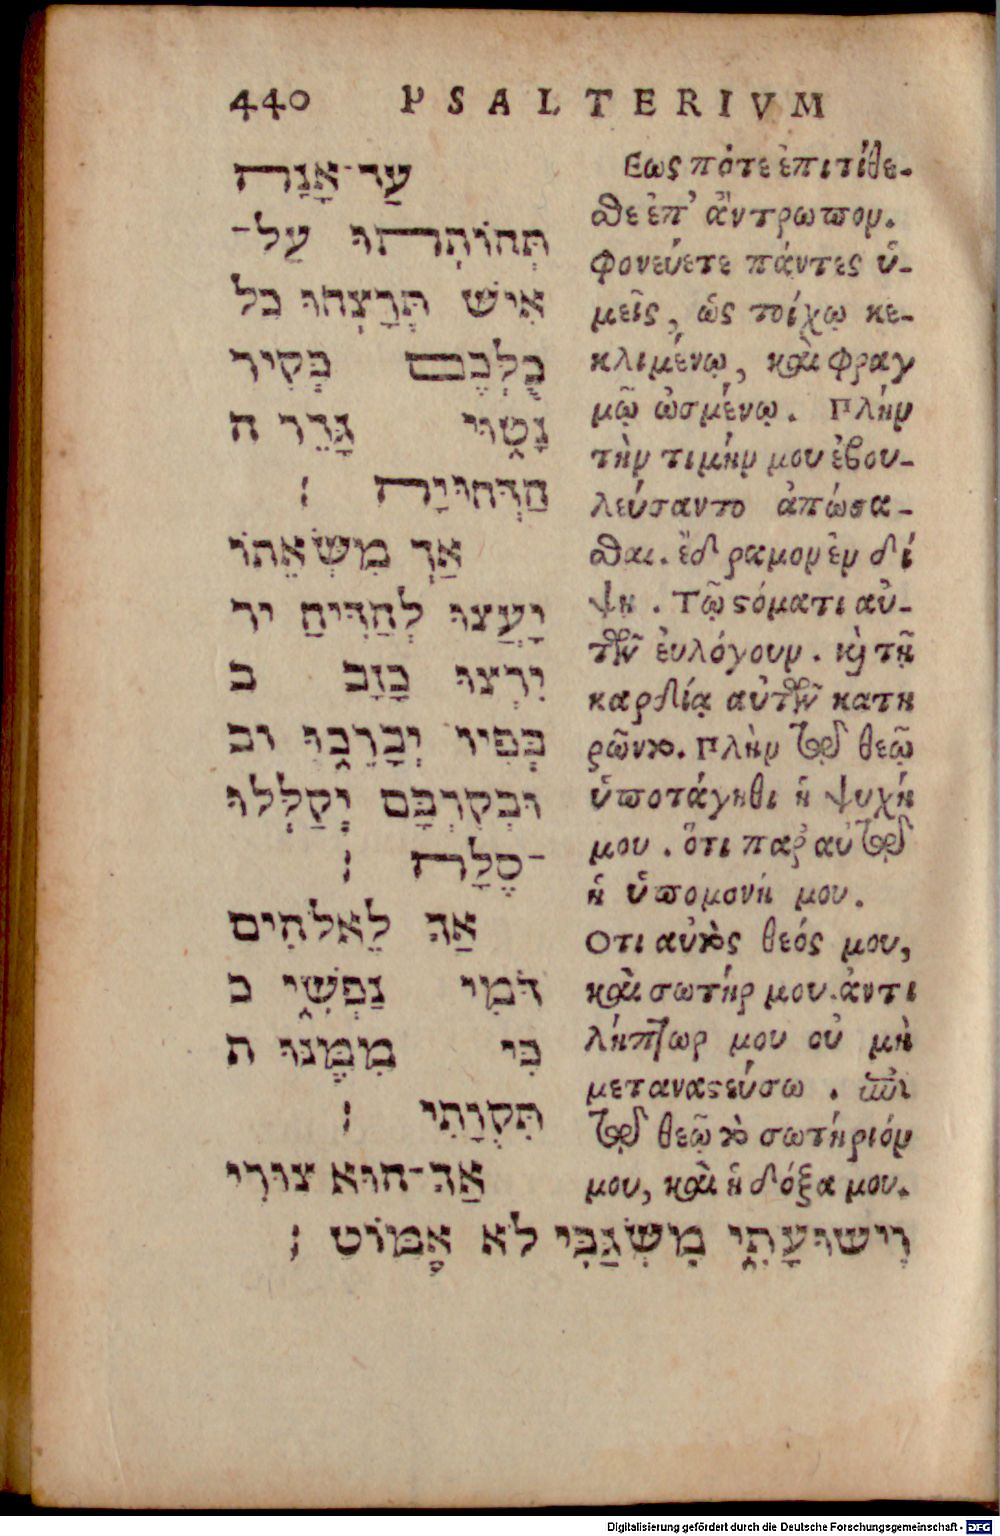 440 PSALTERIVM
עַד־אָנָה
תְּהוֹתְתוּ עַל־
אִישׁ תְּרָצְּחוּ כל
כֻלְּכֶם כְּקִיר
נָטוּי גָּדֵר ה
הַדְּחוּיָה ׃
אַךְ מִשְּׂאֵתוֹ
יָעֲצוּ לְהַדִּיחַ יר
יִרְצוּ כָזָב ב
בְּפִיו יְבָרֵכוּ וב
וּבְקִרְבָּם יְקַלְלוּ
־סֶלָה ׃
אַךְ לֵאלֹהִים
דֹּמִּי נַפְשִׁי כ
כִּי מִמֶּנּוּ ת
תִּקְוָתִי ׃
אַךְ־הוּא צוּרִי
Εως πότε ἐπιτίθε-
σθε ἐπ' ἄντρωπον.
φονεύετε πάντες ὑ-
μεῖς, ὡς τοίχῳ κε-
κλιμένῳ, καὶ φραγ
μῷ ὠσμένῳ. Πλὴν
τὴν τιμήν μου ἐβου-
λεύσαντο ἀπώσα-
σθαι. ἔδραμον ἐν δί
ψῃ. Τῷ στόματι αὐ-
τῶν ἐυλόγουν. καὶ τῇ
καρδίᾳ αὐτῶν κατη
ρῶντο. Πλὴν τῷ θεῷ
ὑποτάγηθι ἡ ψυχή
μου. ὅτι παρ' αὐτῷ
ἡ ὑπομονή μου.
Οτι αὐτὸς θεός μου,
καὶ σωτήρ μου. ἀντι
λήπτωρ μου οὐ μὴ
μεταναστεύσω. ἐπὶ
τῷ θεῷ τὸ σωτήριόν
μου, καὶ ἡ δόξα μου.
וִישׁוּעָתִי מִשְׂגַּבִּי לֹא אֶמּוֹט ׃
Digitalisierung gefördert durch die Deutsche Forschungsgemeinschaft - DFG